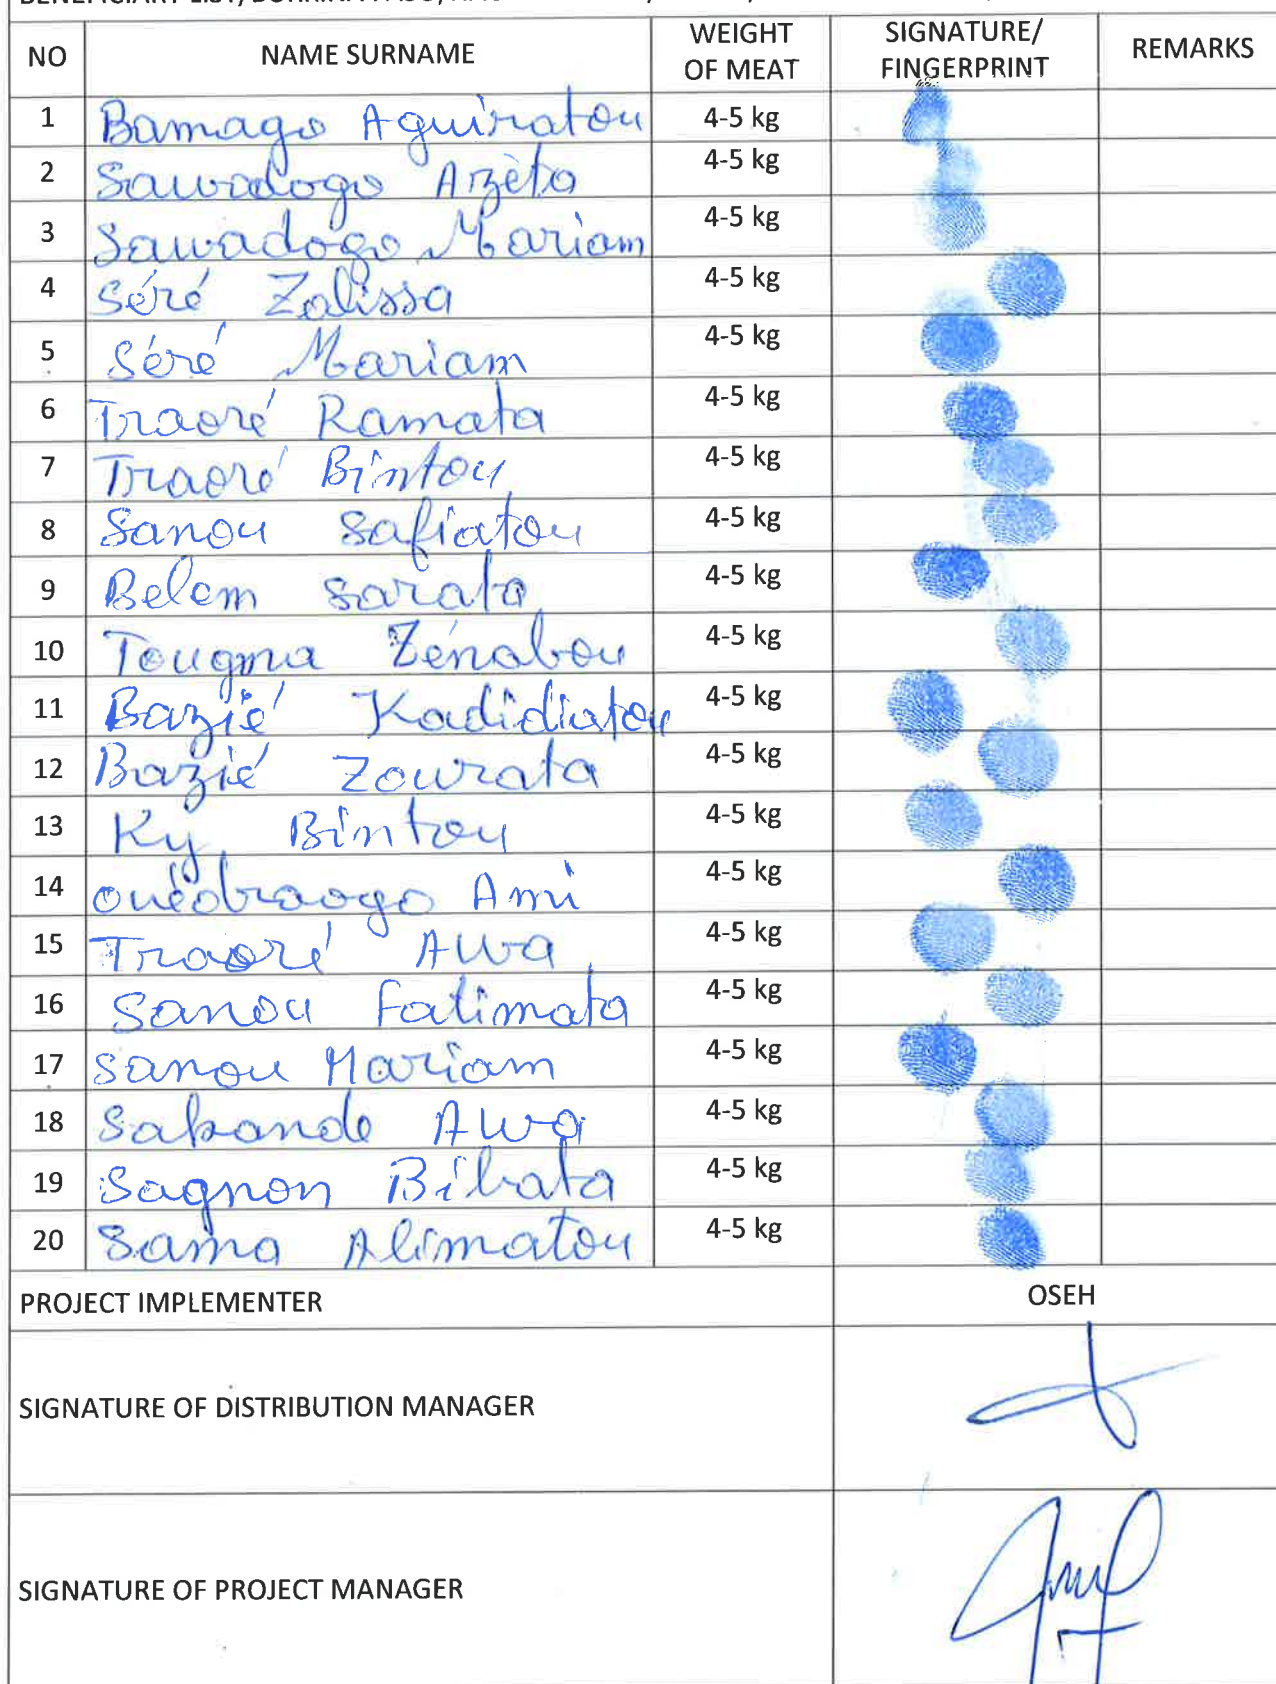 NO NAME SURNAME WEIGHT OF MEAT SIGNATURE/ FINGERPRINT REMARKS
1 Bamago Aguiratou 4-5 kg
2 Sawadogo Azèta 4-5 kg
3 Sawadogo Mariam 4-5 kg
4 Séré Zalissa 4-5 kg
5 Séré Mariam 4-5 kg
6 Traoré Ramata 4-5 kg
7 Traoré Bintou 4-5 kg
8 Sanou Safiatou 4-5 kg
9 Belem Sarata 4-5 kg
10 Tougma Zénabou 4-5 kg
11 Bazié Kadidiatou 4-5 kg
12 Bazié Zourata 4-5 kg
13 Ky Bintou 4-5 kg
14 Ouédraogo Ami 4-5 kg
15 Traoré Awa 4-5 kg
16 Sanou Fatimata 4-5 kg
17 Sanou Mariam 4-5 kg
18 Sakande Awa 4-5 kg
19 Sagnon Bibata 4-5 kg
20 Sama Alimatou 4-5 kg
PROJECT IMPLEMENTER OSEH
SIGNATURE OF DISTRIBUTION MANAGER
SIGNATURE OF PROJECT MANAGER